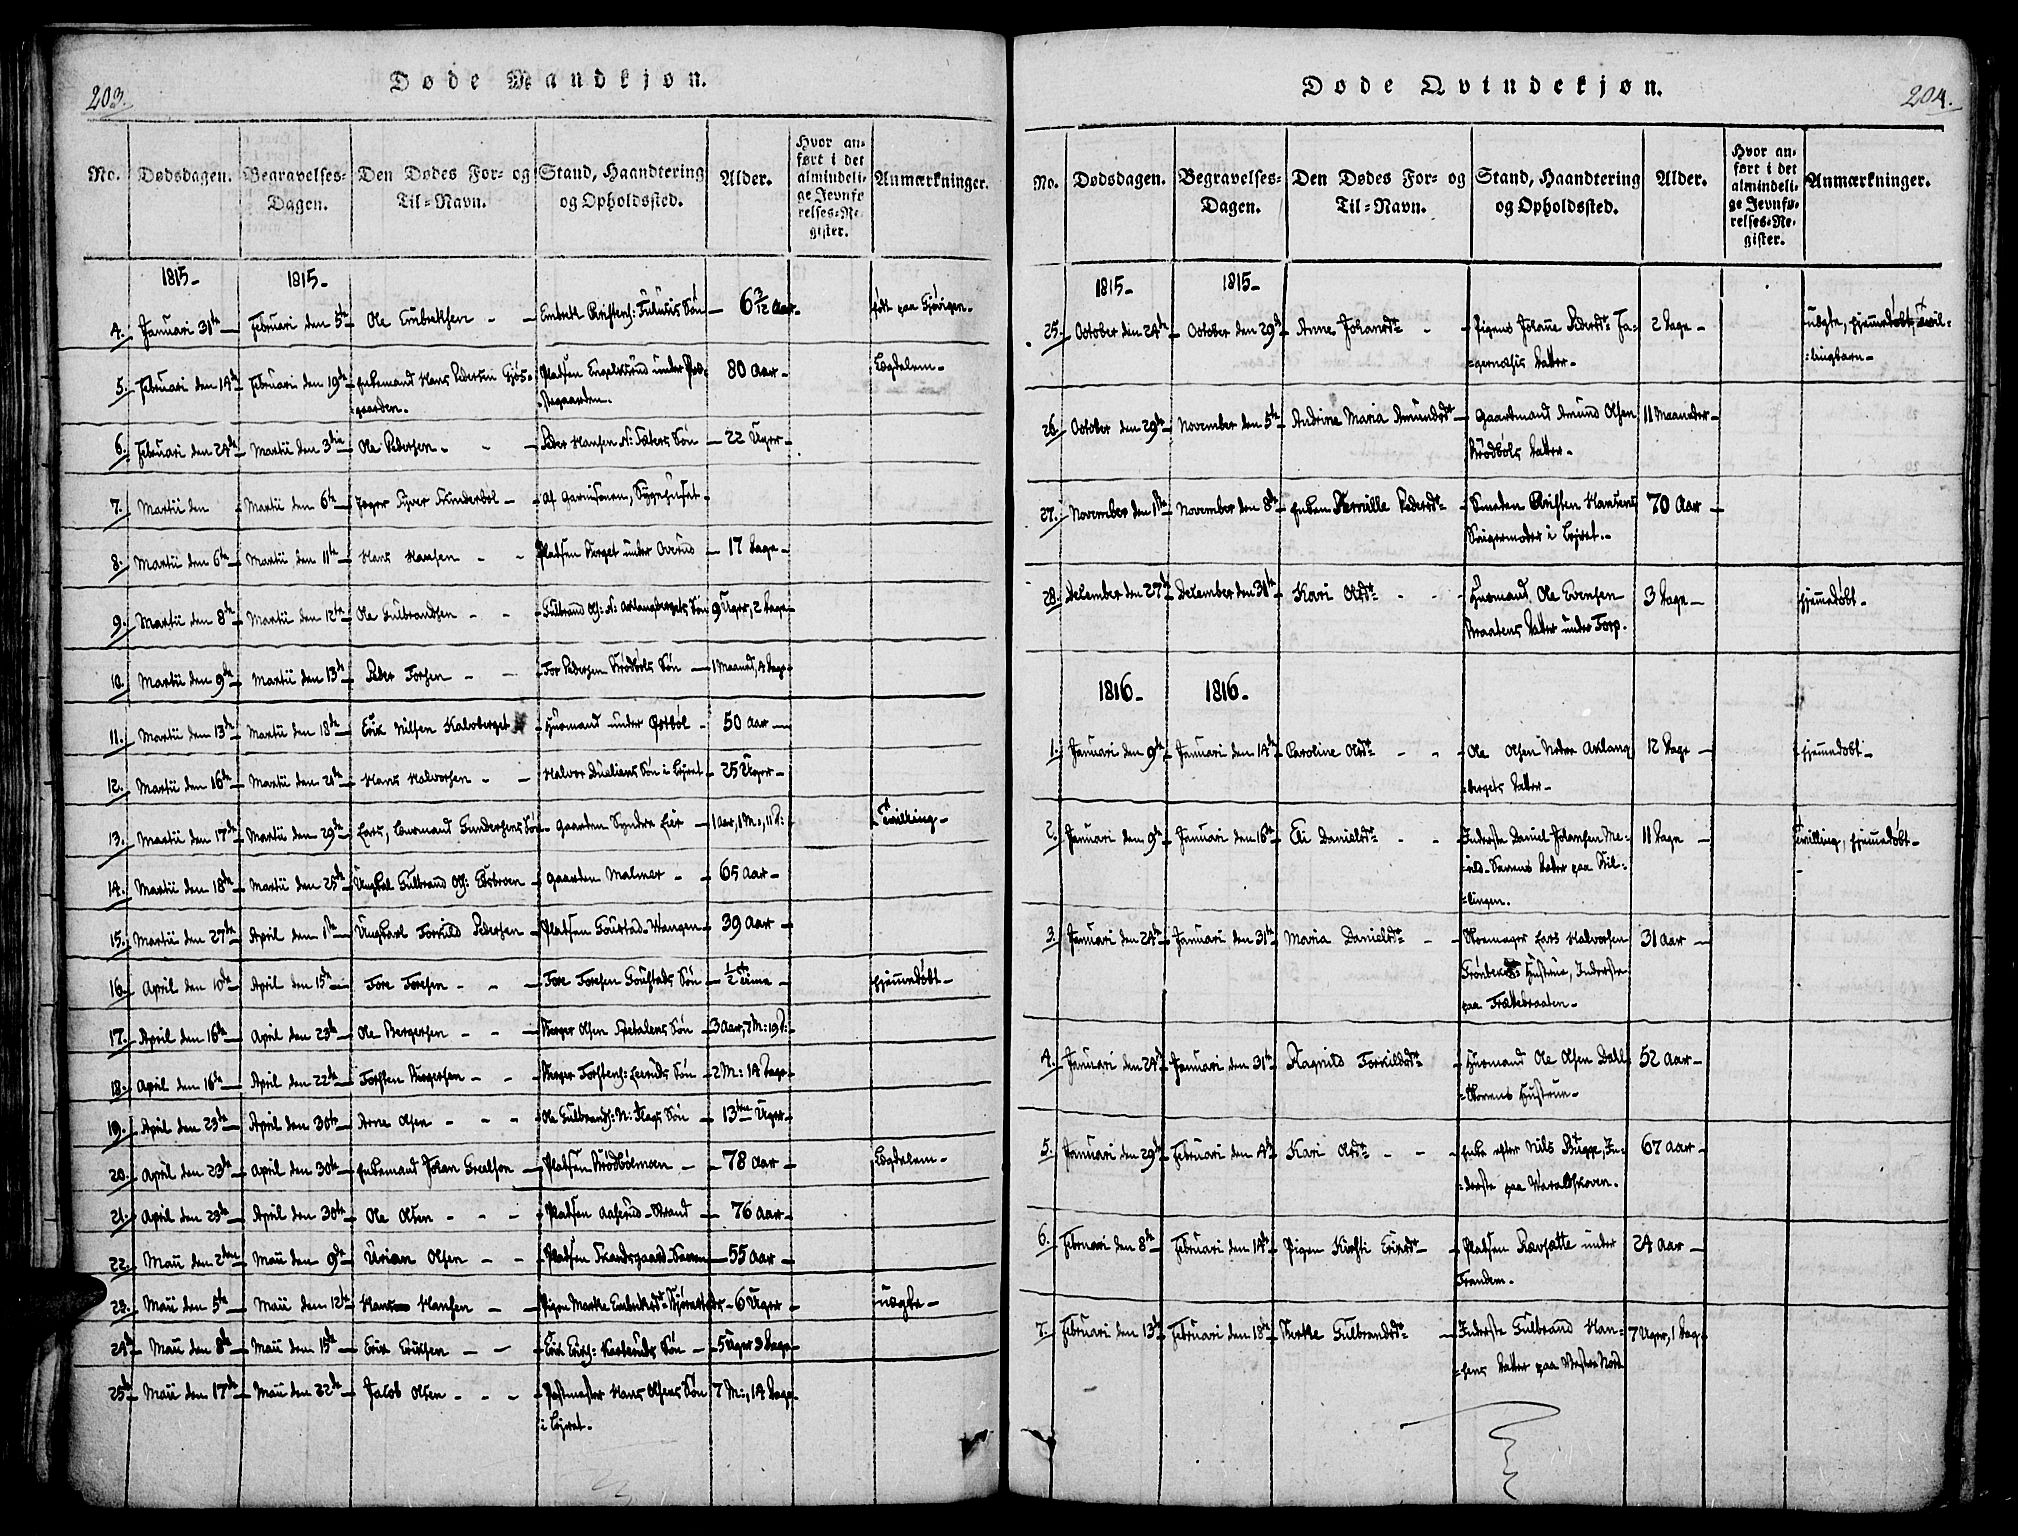 203.
Døde Mandkjøn.
No. Dødsdagen. Begravelses-Dagen. Den Dødes For- og Til-Navn. Stand, Haandtering og Opholdssted. Alder. Hvor anført i det almindelige Jevnførelses-Register. Anmærkninger.
1815- 1815-
4. Januari 31te Februari den 5te Ole Embretsen Embrekt Søn 6 3/12 Aar født paa
5. Februari den 14de Februari den 19de Enkemand Hans Pedersen Pladsen under 80 Aar Lægdslem
gaarden.
6. Februari den 24de Martii den 3die Ole Pedersen Peder Hansen N: Sæters Søn 22 Uger
7. Martii den Martii den 6te Jæger Syver af Garnisonen, Sygehuset
8. Martii den 6te Martii den 11te Hans Hansen Pladsen Berget under Overud 17 Dage
9. Martii den 8de Martii den 12te Ole Gulbrandsen Gulbrand Ols: N: Aklangbergets Søn 9 Uger, 2 Dage
10. Martii den 9de Martii den 13de Peder Torsen Tor Pedersen Brødbøls Søn 1 Maaned, 4 Dage
11. Martii den 13de Martii den 18de Erik Nilsen Kalvberget Huusmand under Østbøl 50 Aar
12. Martii den 16de Martii den 21de Hans Halvorsen Halvor Søn i Lejret 25 Uger
13. Martii den 17de Martii den 29de Lars, Gundersens Søn Gaarden Søndre Lier 1 Aar, 1 M:, 11 D: Tvilling
14. Martii den 18de Martii den 25de Ungkarl Gulbrand Ols: Gaarden Malmer 65 Aar
15. Martii den 27de April den 1te Ungkarl Torkild Pedersen Pladsen Goustad-Wangen 39 Aar
16. April den 10de April den 15de Tore Toresen Tore Toresen Goustads Søn 1/2 Time hjemmedøbt
17. April den 16de April den 23de Ole Bergersen Berger Olsen Spetalens Søn 3 Aar, 7 M: 19 D:
18. April den 16de April den 22de Torsten Bergersen Berger Torstens: Søn 2 M: 14 Dage
19. April den 23de April den 30te Arne Olsen Ole Gulbrands: N: Søn 13ten Uger
20. April den 23de April den 30te Enkemand Johan Pladsen Brødbølmoen 78 Aar Lægdslem
21. April den 23de April den 30te Ole Olsen Pladsen Aaserud-Strand 76 Aar
22. Maii den 2den Maii den 9de Urian Olsen Pladsen 55 Aar
23. Maii den 5te Maii den 12te Hans Hansen Pigen Marte Embretsdr 6 Uger uægte
24de Maii den 8de Maii den 15de Erik Eriksen Erik Eriks: Søn 5 Uger 3 Dage
25de Maii den 17de Maii den 22de Jacob Olsen Postmester Hans Olsens Søn 7 M:, 14 Dage
i Lejret.
204.
Døde Qvindekjøn.
No. Dødsdagen. Begravelses-Dagen. Den Dødes For- og Til-Navn. Stand, Haandtering og Opholdssted. Alder. Hvor anført i det almindelige Jevnførelses-Register. Anmærkninger.
1815- 1815-
25. October den 24de October den 29de Anne Johansdr Pigens Johanne Pedersdr 2 Dage uægte, hjemmedøbt, Tvil-
Datter. lingbarn
26. October den 29de November den 5te Andrine Maria Amundsdr Gaardmand Amund Olsen 11 Maaneder
Brødbøls Datter.
27. November den 1ste November den 8de Enken Pernille Pedersdr Smeden Kristen Hansens 70 Aar
Svigermoder i Lejret.
28. December den 27de December den 31te Kari Olsdr Huusmand Ole Evensen 3 Dage hjemmedøbt
Braatens Datter under Torp.
1816- 1816-
1. Januari den 9de Januari den 14de Caroline Olsdr Ole Olsen Nedre Aklang 12 Dage hjemmedøbt
bergets Datter
2. Januari den 9de Januari den 16de Eli Danielsdr Inderste Daniel Johansen 11 Dage Tvilling, hjemmedøbt
Datter paa
lingen.
3. Januari den 24de Januari den 31te Maria Danielsdr Skomager Lars Halvorsen 31 Aar
Hustrue, Inderste
paa Trættebraaten
4. Januari den 24de Januari den 31te Ragnild Torkildsdr Huusmand Ole Olsen Dahl 52 Aar
Hustrue
5. Januari den 29de Februari den 4de Kari Olsdr Enke efter Nils Bugge, In- 67 Aar
derste paa Varaldskoven.
6. Februari den 8de Februari den 14de Pigen Kirsti Eriksdr Pladsen Ravsætte under 24 Aar
Frandem.
7. Februari den 13de Februari den 18de Berte Gulbrandsdr Inderste Gulbrand Han- 7 Uger, 1 Dag
sens Datter paa Vestre Nord